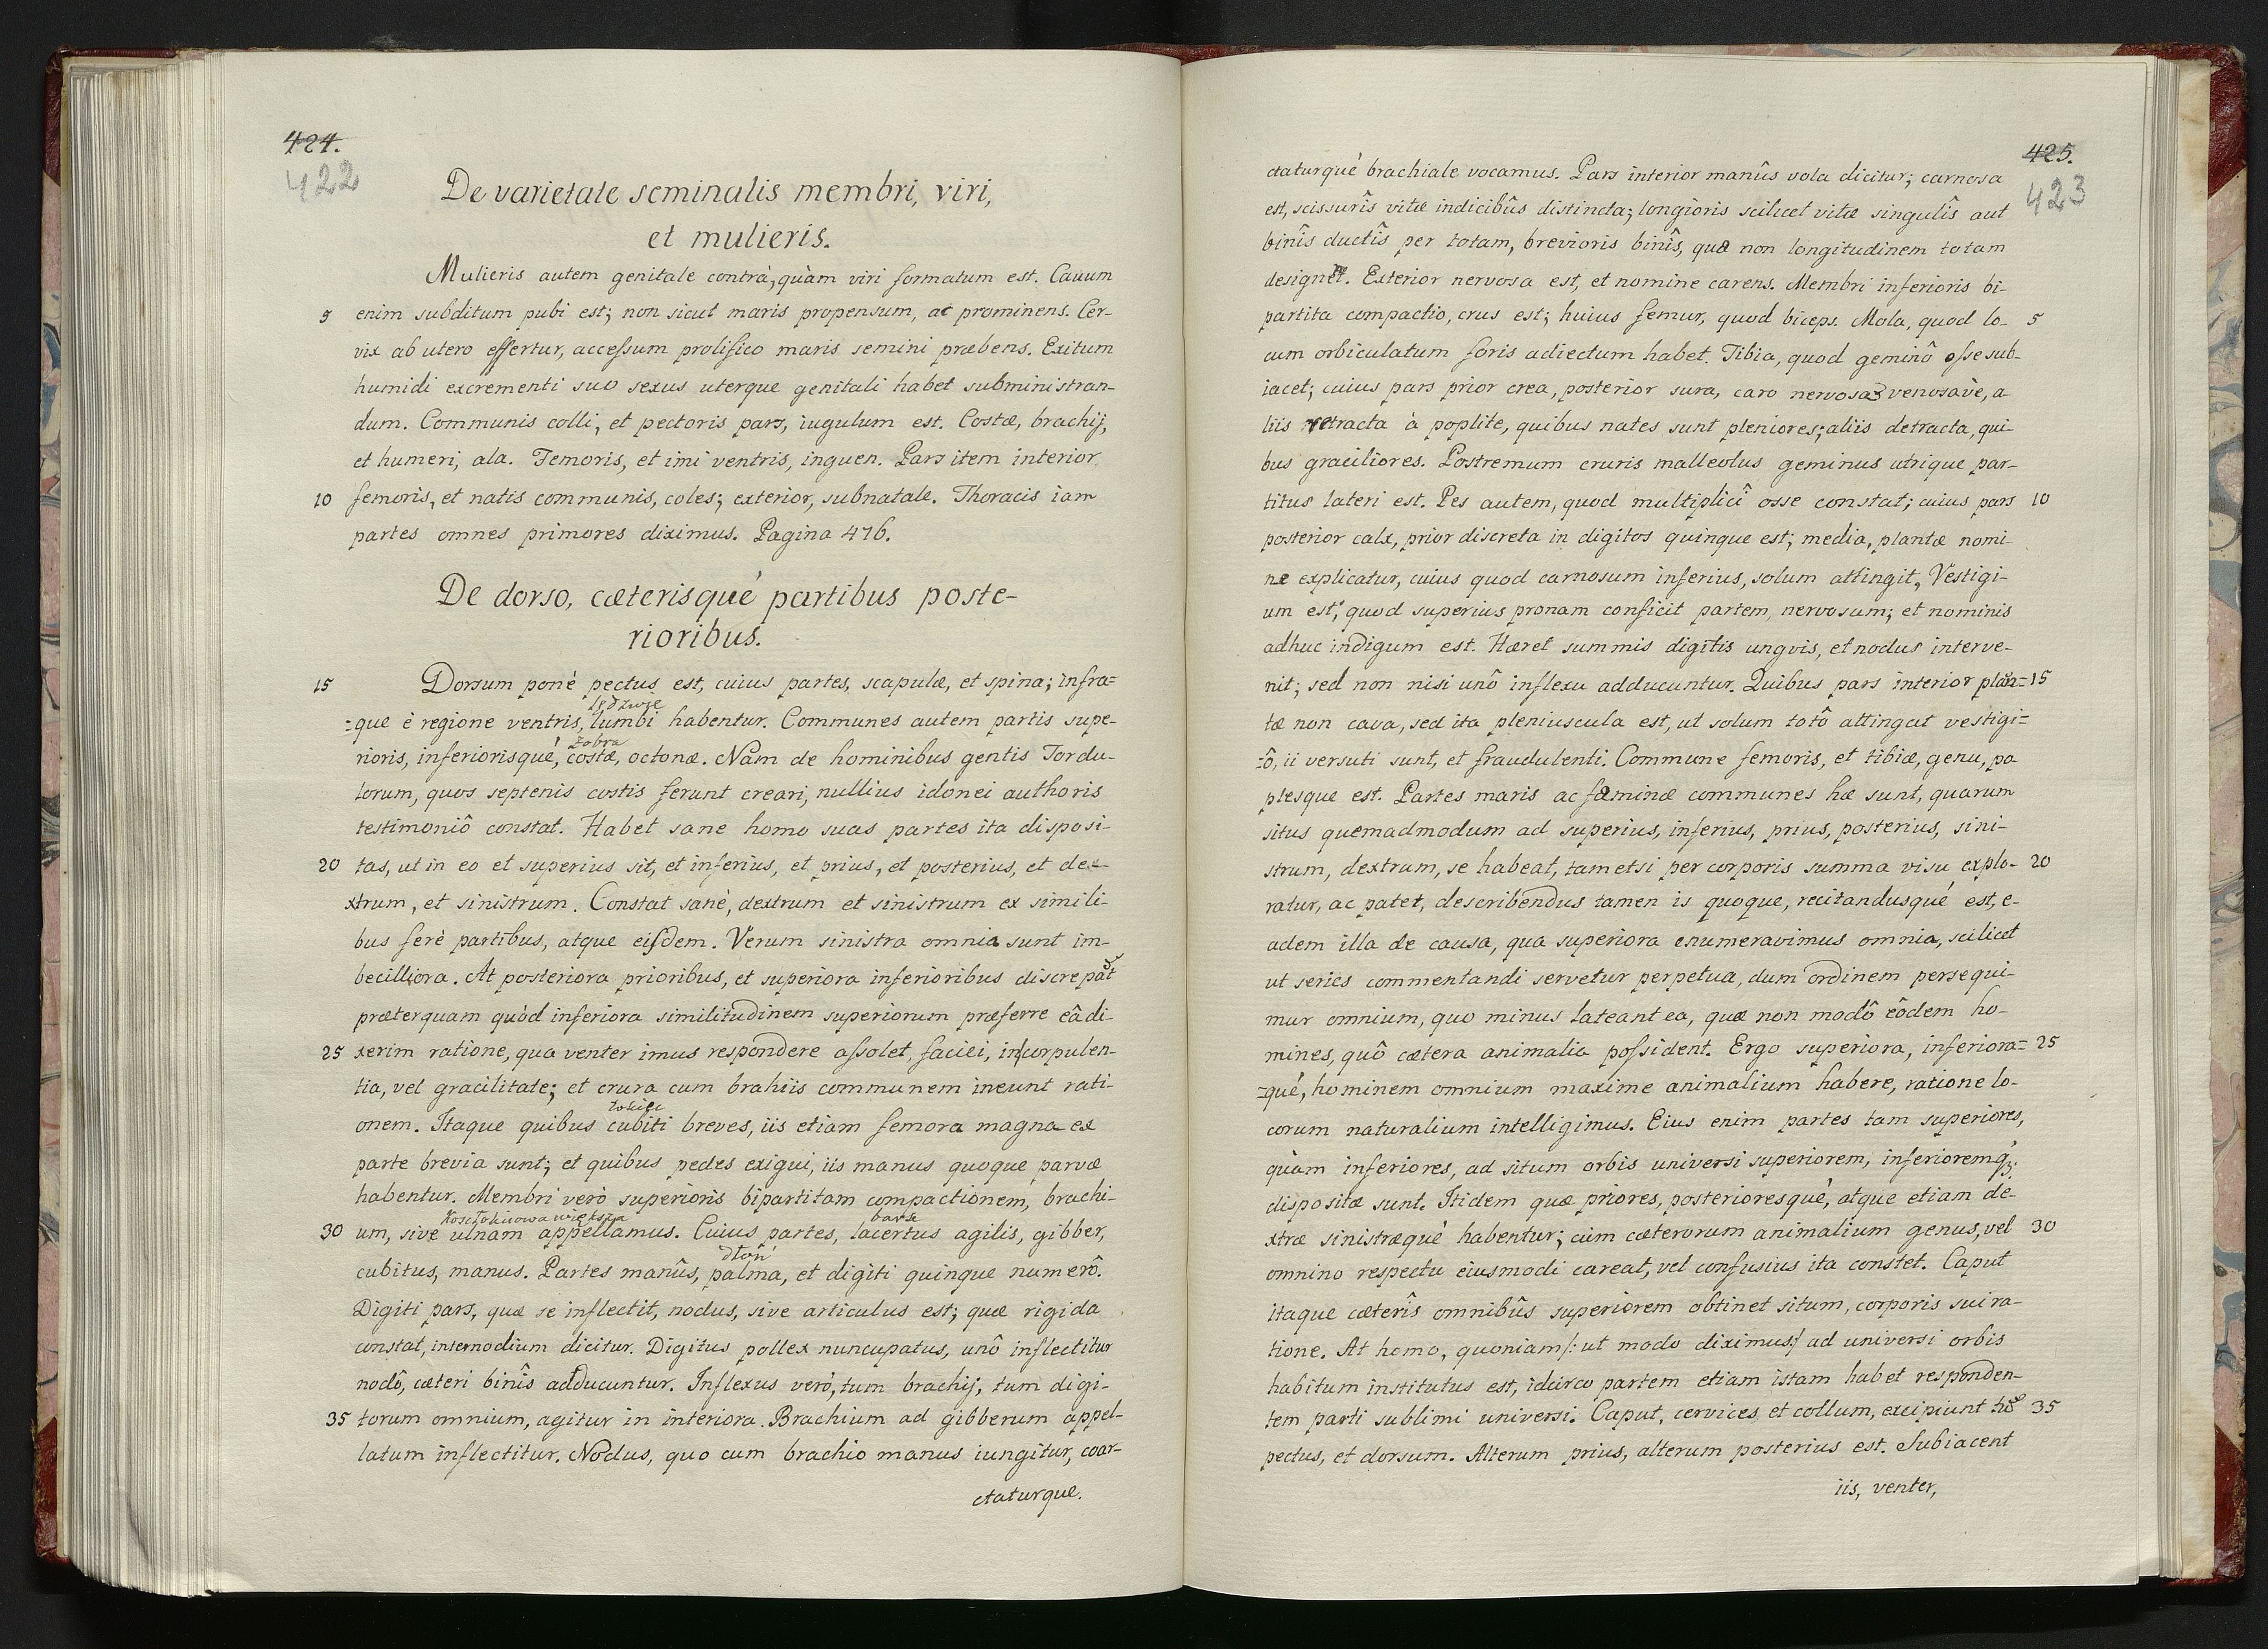 424.
422
De varietate seminalis membri, viri,
et mulieris.
Mulieris autem genitale contrà, quàm viri formatum est. Cauum
5 enim subditum pubi est; non sicut maris propensum, ac prominens. Cer-
vix ab utero effertur, accessum prolifico maris semini præbens. Exitum
humidi excrementi suo sexus uterque genitali habet subministran-
dum. Communis colli, et pectoris pars, iugulum est. Costæ, brachij,
et humeri, ala. Femoris, et imi ventris, inguen. Pars item interior
10 femoris, et natis communis, coles; exterior, subnatale. Thoracis iam
partes omnes primores diximus. Pagina 476.
De dorso, cæterisqué partibus poste-
rioribus.
15 Dorsum ponè pectus est, cuius partes, scapulæ, et spina; infra=
lędzwie
=que è regione ventris, lumbi habentur. Communes autem partis supe-
żobra
rioris, inferiorisqué, costæ, octonæ. Nam de hominibus gentis Tordu-
lorum, quos septenis costis ferunt creari, nullius idonei authoris
testimoniô constat. Habet sane homo suas partes ita disposi-
20 tas, ut in eo et superius sit, et inferius, et prius, et posterius, et de-
xtrum, et sinistrum. Constat sanè, dextrum et sinistrum ex simili-
bus ferè partibus, atque eisdem. Verum sinistra omnia sunt im-
becilliora. At posteriora prioribus, et superiora inferioribus discrepāt
præterquam quòd inferiora similitudinem superiorum præferre eâ di-
25 xerim ratione, qua venter imus respondere assolet, faciei, in corpulen-
tia, vel gracilitate; et crura cum brahiis communem ineunt rati-
łokiec
onem. Itaque quibus cubiti breves, iis etiam femora magna ex
parte brevia sunt; et quibus pedes exigui, iis manus quoque parvæ
habentur. Membri verò superioris bipartitam compactionem, brachi-
Kość łokciowa większa bark
30 um, sive ulnam appellamus. Cuius partes, lacertus agilis, gibber,
dłoń
cubitus, manus. Partes manûs, palma, et digiti quinque numerô.
Digiti pars, quæ se inflectit, nodus, sive articulus est; quæ rigida
constat, internodium dicitur. Digitus pollex nuncupatus, unô inflectitur
nodô, cæteri binîs adducuntur. Inflexus verò, tum brachij, tum digi-
35 torum omnium, agitur in interiora. Brachium ad gibberum appel-
latum inflectitur. Nodus, quo cum brachio manus iungitur, coar-
ctaturque.
425.
423
ctaturqué brachiale vocamus. Pars interior manûs vola dicitur; carnosa
est, scissurîs vitæ indicibûs distincta; longioris scilicet vitæ singulîs aut
binîs ductîs per totam, brevioris binîs, quæ non longitudinem totam
designet. Exterior nervosa est, et nomine carens. Membri inferioris bi-
partita compactio, crus est; huius femur, quod biceps. Mola, quod lo- 5
cum orbiculatum foris adiectum habet. Tibia, quod geminô osse sub-
iacet; cuius pars prior crea, posterior sura, caro nervosa, venosavè, a-
liis retracta à poplite, quibus nates sunt pleniores; aliis detracta, qui-
bus graciliores. Postremum cruris malleolus geminus utrique par-
titus lateri est. Pes autem, quod multiplicî osse constat; cuius pars 10
posterior calx, prior discreta in digitos quinque est; media, plantæ nomi-
ne explicatur, cuius quod carnosum inferius, solum attingit, Vestigi-
um est; quod superius pronam conficit partem, nervosum; et nominis
adhuc indigum est. Hæret summis digitis ungvis, et nodus interve-
nit; sed non nisi unô inflexu adducuntur. Quibus pars interior plan= 15
tæ non cava, sed ita pleniuscula est, ut solum totô attingat vestigi=
=ô, ii versuti sunt, et fraudulenti. Commune femoris, et tibiæ, genu, po
plesque est. Partes maris ac fæminæ communes hæ sunt, quarum
situs quemadmodum ad superius, inferius, prius, posterius, sini-
strum, dextrum, se habeat, tametsi per corporis summa visu explo- 20
ratur, ac patet, describendus tamen is quoque, recitandusqué est, e-
adem illa de causa, qua superiora enumeravimus omnia, scilicet
ut series commentandi servetur perpetua, dum ordinem persequi-
mur omnium, quo minus lateant ea, quæ non modô eôdem ho-
mines, quô cætera animalia possident. Ergo superiora, inferiora= 25
=qué, hominem omnium maxime animalium habere, ratione lo-
corum naturalium intelligimus. Eius enim partes tam superiores,
quàm inferiores, ad situm orbis universi superiorem, inferioremq3.
dispositæ sunt. Itidem quæ priores, posterioresqué, atque etiam de-
xtræ sinistræqué habentur; cùm cæterorum animalium genus, vel 30
omnino respectu eiusmodi careat, vel confusius ita constet. Caput
itaque cæterîs omnibûs superiorem obtinet situm, corporis sui ra-
tione. At homo, quoniam /: ut modo diximus :/ ad universi orbis
habitum institutus est, idcirco partem etiam istam habet responden-
tem parti sublimi universi. Caput, cervices et collum, excipiunt 35
pectus, et dorsum. Alterum prius, alterum posterius est. Subiacent
iis, venter,